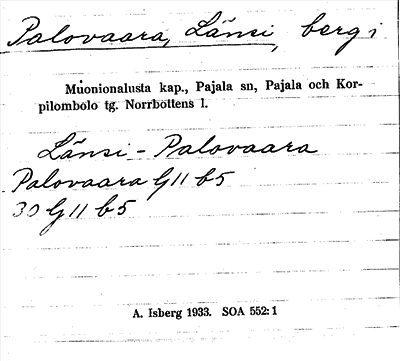 Palovaara, Länsi, berg i
Muonionalusta kap., Pajala sn, Pajala och Kor-
pilombolo tg. Norrbottens l.
Länsi - Palovaara
Palovaara G11 b5
30 G11 b5
A. Isberg 1933. SOA 552:1